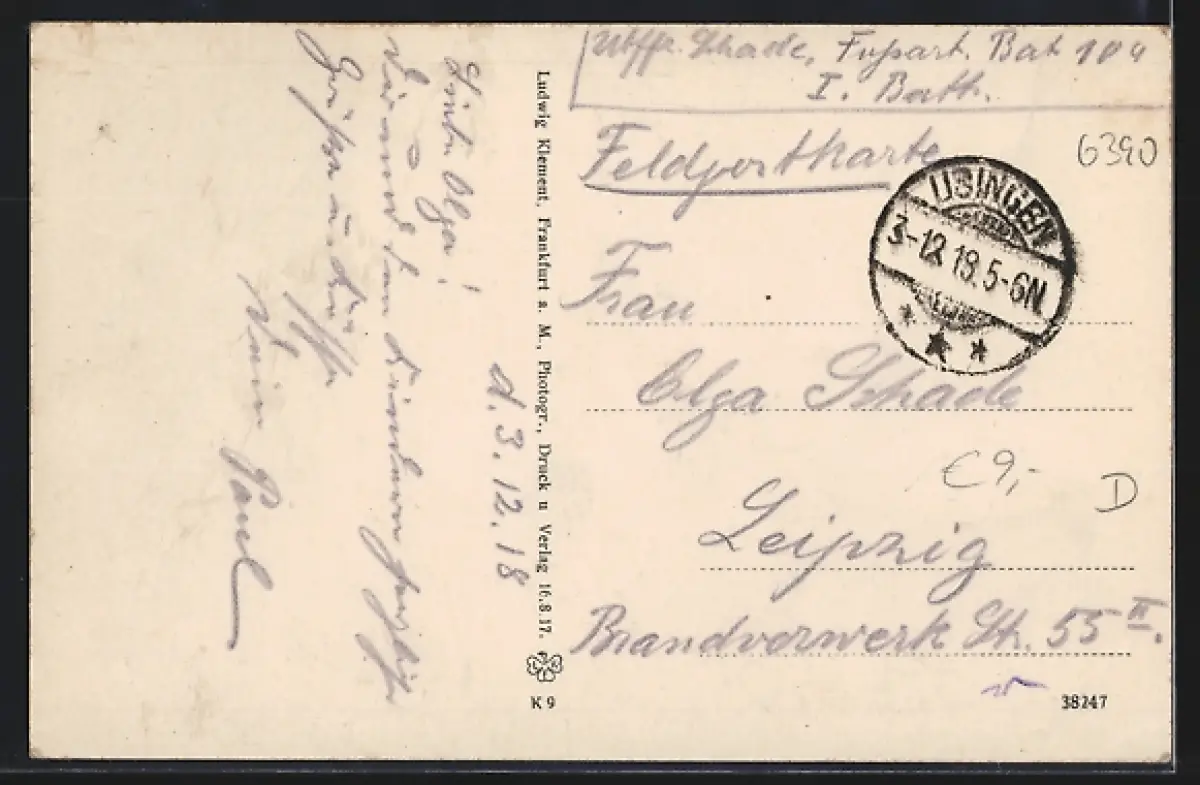 d. 3.12.18
Liebe Olga!
Dir und den Kindern herzl.
Grüße u. Küsse
Dein Paul
Ludwig Klement, Frankfurt a. M., Photogr., Druck u Verlag 16.8.17.
K 9
Schade, Fußart. Bat 104
I. Batt.
Feldpostkarte
6390
USINGEN
3-12.18.5-6N
Frau
Olga Schade
€9,-
D
Leipzig
Brandvorwerk Str. 55 II.
38247